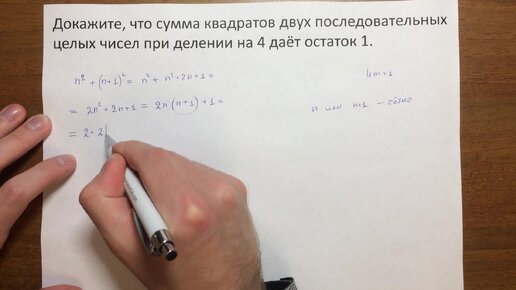 Докажите, что сумма квадратов двух последовательных
целых чисел при делении на 4 даёт остаток 1.
n² + (n+1)² = n² + n² + 2n + 1 =
4m+1
= 2n² + 2n + 1 = 2n(n+1) + 1 =
n или n+1 – чётно
= 2 · 2